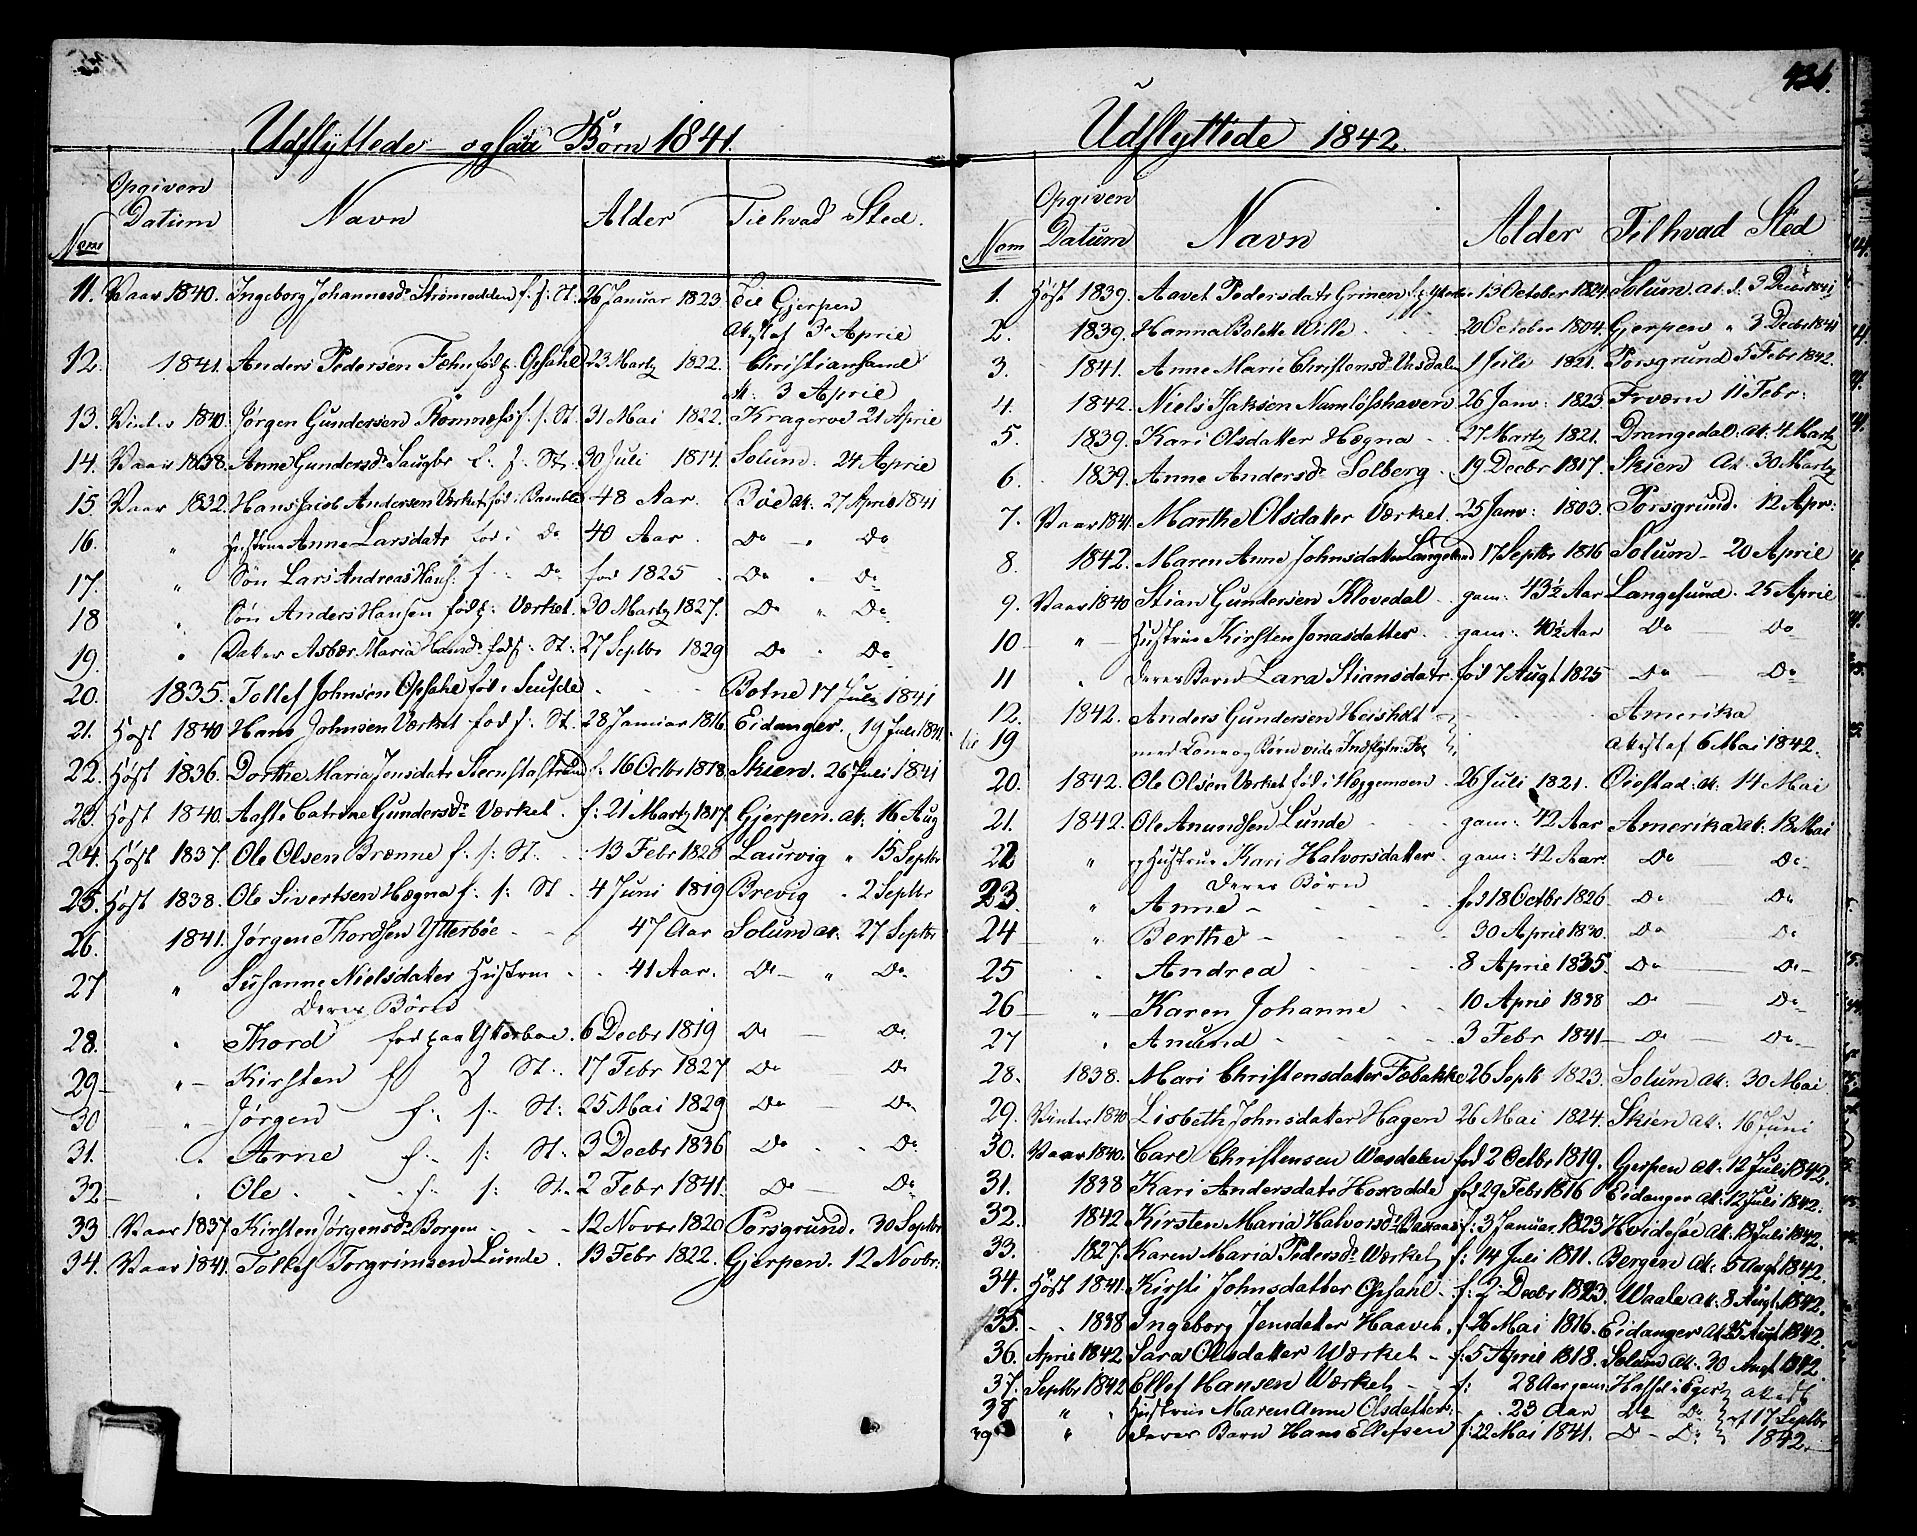 Udflyttede ogsaa Børn 1841.
Nom Opgiven Datum Navn Alder Til hvad Sted.
11. Vaar 1840. Ingeborg Johannesdr Strømodden f. s: St. 26 Januar 1823 Til Gjerpen
At af 3 April
12. 1841. Anders Pedersen Fæhn fød p. Opsahl 23 Martz 1822. Christiansand
At: 3 April
13. Vinter 1840. Jørgen Gundersen Rømnæs f. s. St. 31 Mai 1822. Kragerøe 21 April
14. Vaar 1838. Anne Gundersdr Saugbr f. s. St. 30 Juli 1814. Solum. 24 April
15 Vaar 1832. Hans Jacob Andersen Værket fød i Bamble 48 Aar. Bøe at. 27 April 1841
16. " Hustrue Anne Larsdatr fød i Do 40 Aar. Do - Do
17. " Søn Lars Andreas Hans: f - Do fød 1825 Do " Do
18 " Søn Anders Hansen fød p: Værket. 30 Martz 1827. Do " Do
19. " Datter Asbær Maria Hansdr fød s. St: 27 Septbr 1829 Do " Do
20. 1835. Tollef Johnsen Opsahl fød i Saufde - - - Botne 17 July 1841
21. Høst 1840 Hans Johnsen Værket fød s: St. 28 Januar 1816. Eidanger. 19 Juli 1841.
22. Høst 1836. Dorthe Maria Jensdatr Sternstastrand f. 16 Octbr 1818. Skien. 26 Juli 1841
23. Høst 1840. Aaste Catrine Gundersdr Værket. f: 21 Martz 1817. Gjerpen. at: 16 Aug
24. Høst 1837. Ole Olsen Brænne f. s: St. 13 Febr 1820 Laurvig " 15 Septbr
25. Høst 1838. Ole Sivertsen Hægna f. s: St 4 Juni 1819 Brevig - 2 Septbr
26. 1841. Jørgen Thordsen Ytterbøe - - 47 Aar Solum at. 27 Septbr
27 " Susanne Nielsdater Hustrue - - 41 Aar. Do - " Do
Deres Børn
28. " Thord fød paa Ytterboe. 6 Decbr 1819 Do - Do
29 - " Kirsten f s St. 17 Febr 1827 Do - Do
30 " Jørgen f: s: St: 25 Mai 1829 Do - Do
31. " Arne f: s: St. 3 Decbr 1836 Do - Do
32 - " Ole - f: s: St. 2 Febr 1841. Do - Do
33 Vaar 1837. Kirsten Jørgensdr Borgen - - 12 Novbr 1820 Porsgrund. 30 Septbr
34. Vaar 1841. Tollef Torgrimsen Lunde. 13 Febr 1822. Gjerpen. 12 Novbr:
436.
Udflyttede 1842.
Nom Opgiven Datum Navn Alder Til hvad Sted
1. Høst 1839. Aavet Pedersdatr Grinen 15 October 1824 Solum at. d. 3 Decbr 1841
2. 1839. Hanna Bolette Wille - - 20 October 1804. Gjerpen " 3 Decbr 1841
3. 1841. Anne Marie Christensdr Uasdalen 1 Juli 1821. Porsgrund 5 Febr 1842.
4. 1842. Niels Isaksen Namløshaven 26 Janv: 1823 Frværn 11 Febr:
5. 1839. Kari Olsdatter Hægna - 27 Martz 1821. Drangedal. at. 4 Martz
6. 1839. Anne Andersdr Solberg. 19 Decbr 1817. Skien At 30 Martz
7. Vaar 1841. Marthe Olsdater Værket. 25 Janv: 1803. Porsgrund. 12 Apr:
8. 1842. Maren Anne Johnsdatter Langesund 17 Septbr 1816 Solum - 20 April
9. Vaar 1840 Stian Gundersen Klovedal. gam: 43½ Aar Langesund. 25 April
10 " - Hustrue Kirsten Jonasdatter. gam: 40½ Aar Do Do
11 " Deres Barn Lara Stiansdatr. fød 7 Augt 1825 Do - Do
12. 1842. Anders Gundersen Heisholt - - Amerika
til 19 med Kone og Børn vide Indflytn: For Attest af 6 Mai 1842.
20. 1842. Ole Olsen Værket fød i Hæggemoen 26 Juli 1821. Oiestad. at. 14 Mai
21. 1842. Ole Anundsen Lunde - gam: 42 Aar Amerika at. 18 Mai
22 " og Hustrue Kari Halvorsdatter. gam: 42 Aar Do - Do
Deres Børn
23. " Anne - - fød 18 Octbr 1826 Do - Do
24 " Berthe - - 30 April 1830. Do - Do
25 " Andrea - - 8 April 1835 Do - Do
26 " Karen Johanne - - 10 April 1838 Do - Do
27 " Anund - - 3 Febr 1841 - Do - Do
28. 1838. Mari Christensdater Fæbakke 26 Septb 1823. Solum at. 30 Mai
29. Vinter 1840 Lisbeth Johnsdater Hagen 26 Mai 1824. Skien at. 16 Juni
30. Vaar 1840. Carl Christensen Uasdalen fød 2 Octbr 1819. Gjerpen at. 12 Juli 1842.
31. 1838 Kari Andersdatr Hosrodde fød 29 Febr 1816 Eidanger at. 12 Juli 1842.
32. 1842 Kirsten Maria Halvorsdr Bakaas f. 3 Januar 1823 Hvidesøe at. 13 Juli 1842.
33. 1827. Karen Maria Pedersdr Værket f. 14 Juli 1811. Bergen at. 5 Augt 1842.
34. Høst 1841. Kirsti Johnsdatter Opsahl. f. 2 Decbr 1823. Waale at. 8 Augt 1842.
35. - - 1838 Ingeborg Jensdater Haavet. f. 26 Mai 1816. Eidanger at. 25 Augt 1842.
36. April 1842 Sara Olsdatter Værket - f. 5 April 1818. Solum at. 30 Augt 1842.
37. Septbr 1842 Ellef Hansen Værket - f: 28 Aar gam: Hassel i Eger attest
38 " Hustrue Maren Anne Olsdatter. 23 Aar Do Do af 17 Septbr
39 " Deres Barn Hans Ellefsen f: 22 Mai 1841. D - Do 1842.